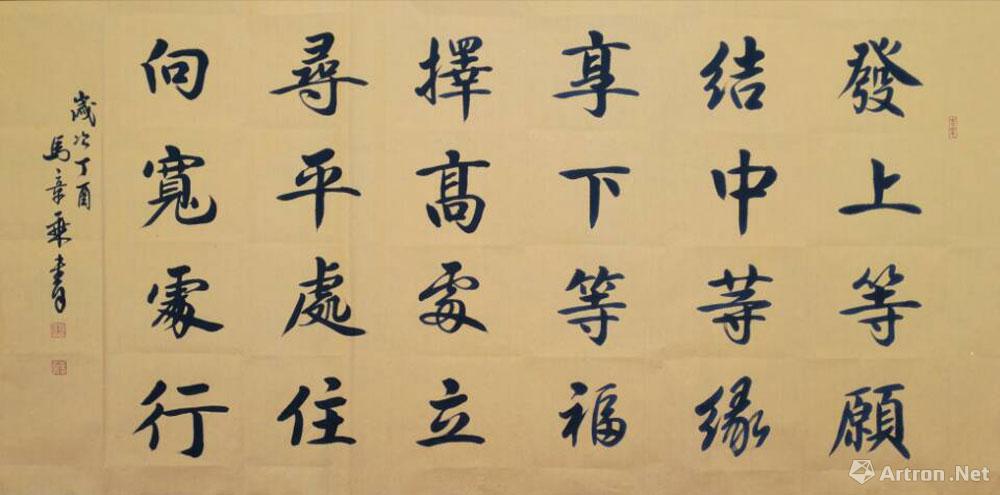 發上等願
結中等緣
享下等福
擇高處立
尋平處住
向寬處行
歲次丁酉
馬章乘書
Artron.Net